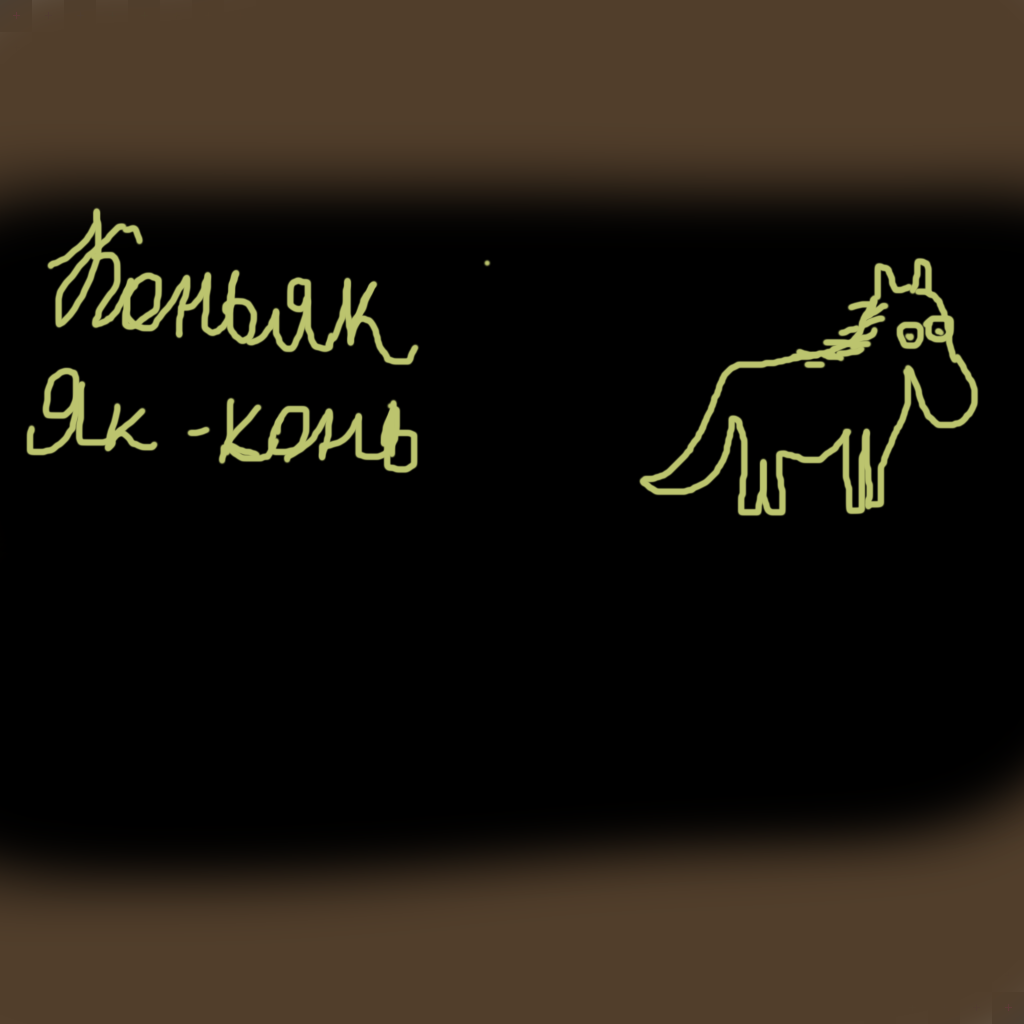 Коньяк
Як-конь